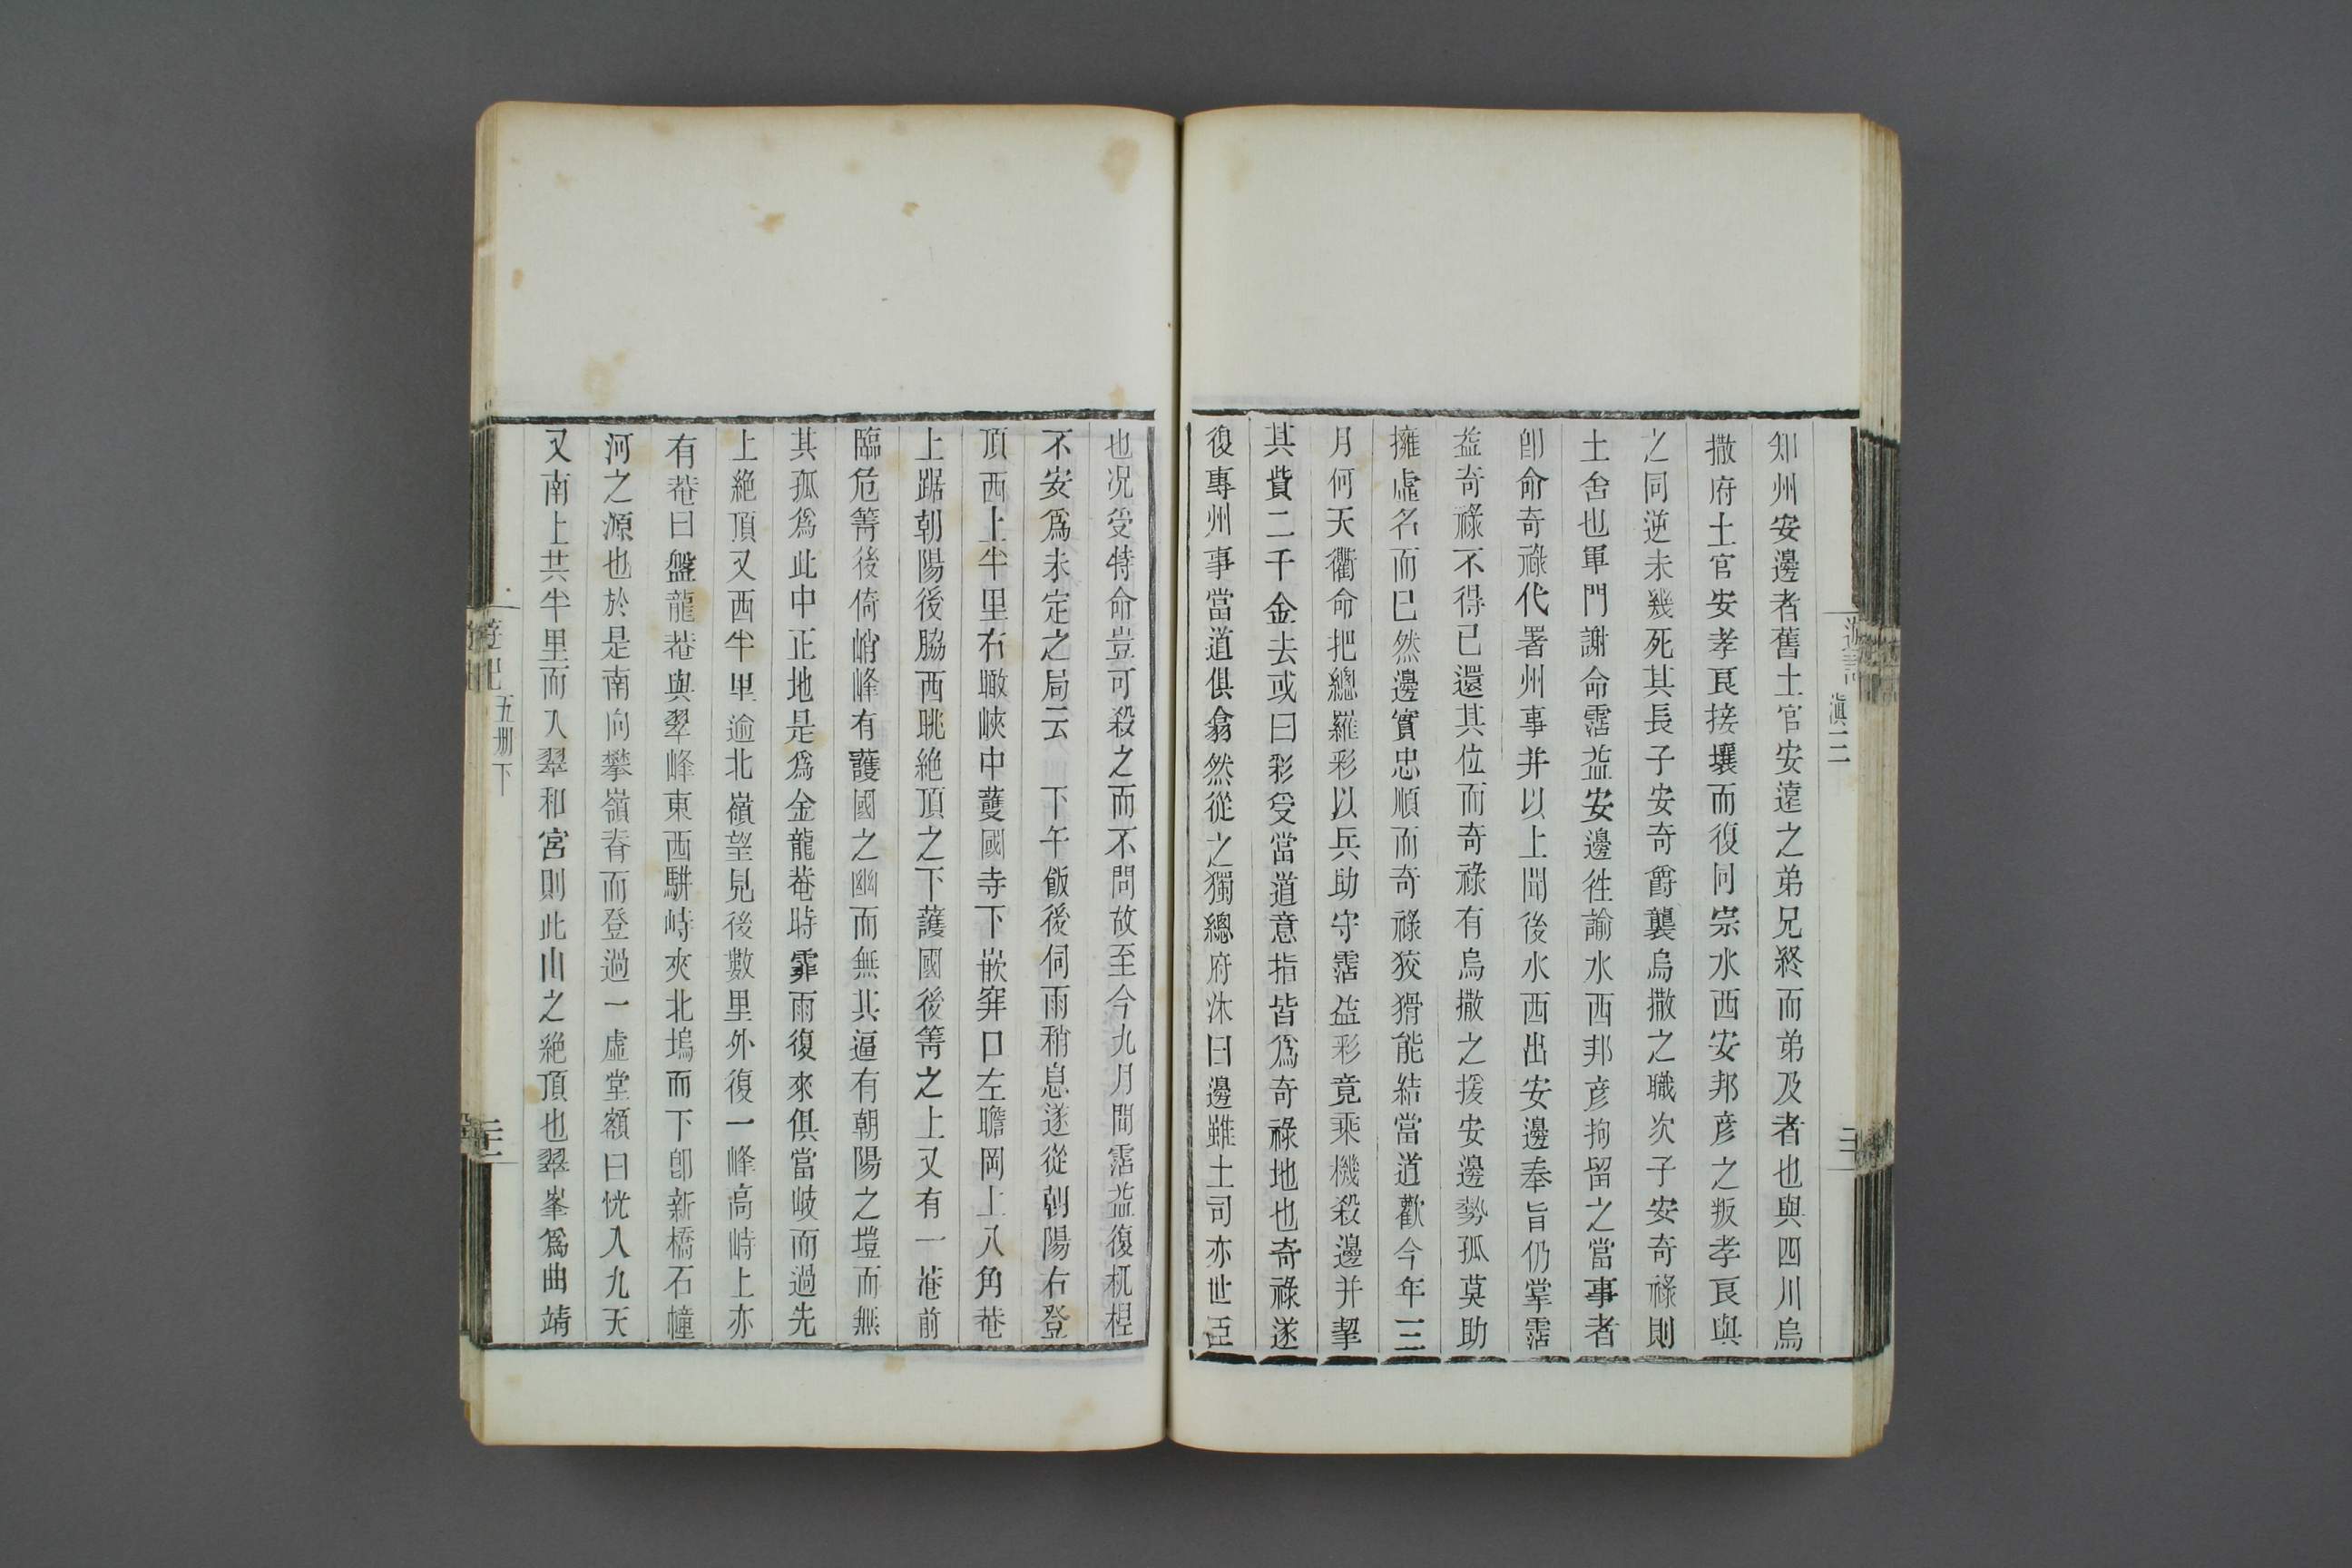 遊記 滇三
知州安邊者舊土官安遠之弟兄終而弟及者也與四川烏
撒府土官安孝良接壤而復同宗水西安邦彦之叛孝良與
之同逆未幾死其長子安奇爵襲烏撒之職次子安奇祿則
土舍也軍門謝命霑益安邊徃諭水西邦彦拘留之當事者
卽命奇祿代署州事并以上聞後水西出安邊奉旨仍掌霑
益奇祿不得已還其位而奇祿有烏撒之援安邊勢孤莫助
擁虛名而已然邊實忠順而奇祿狡猾能結當道歡今年三
月何天衢命把總羅彩以兵助守霑益彩竟乘機殺邊并挈
其貲二千金去或曰彩受當道意指皆爲奇祿地也奇祿遂
復專州事當道俱翕然從之獨總府沐曰邊雖土司亦世臣
也况受特命豈可殺之而不問故至今九月間霑益復杌桯
不安爲未定之局云 下午飯後伺雨稍息遂從朝陽右登
頂西上半里右瞰峽中護國寺下嵌穽口左瞻岡上八角菴
上踞朝陽後脇西眺絶頂之下護國後箐之上又有一菴前
臨危箐後倚峭峰有護國之幽而無其逼有朝陽之塏而無
其孤爲此中正地是爲金龍菴時霏雨復來俱當岐而過先
上絶頂又西半里逾北嶺望見後數里外復一峰高峙上亦
有菴曰盤龍菴與翠峰東西駢峙夾北塢而下卽新橋石幢
河之源也於是南向攀嶺脊而登過一虛堂額曰恍入九天
又南上共半里而入翠和宮則此山之絶頂也翠峯爲曲靖
遊記 五册下